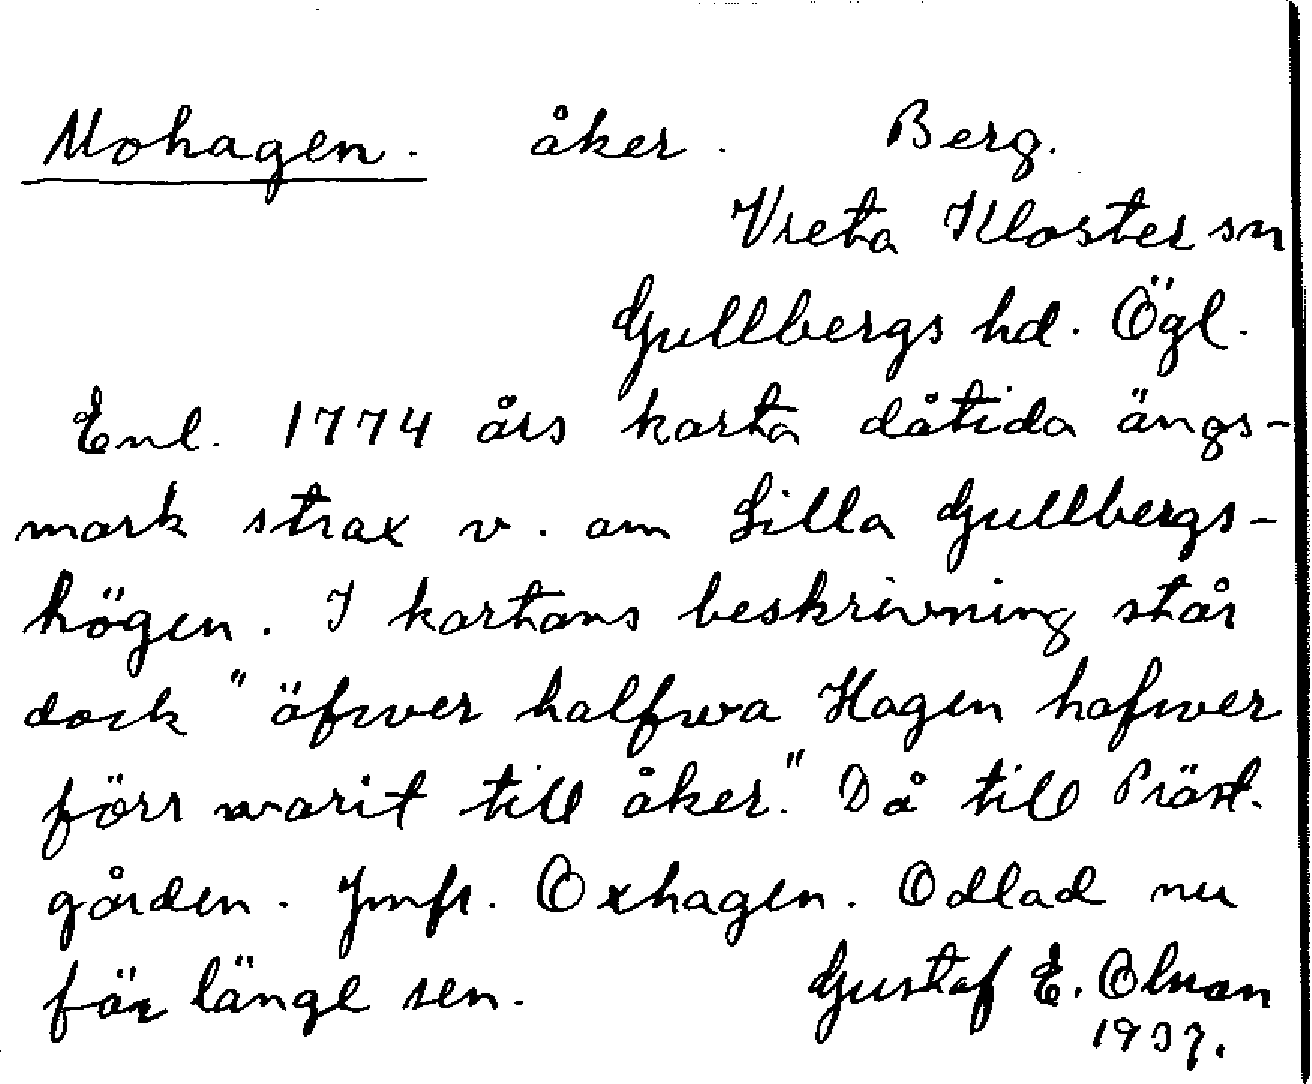 Mohagen. åker. Berg.
Vreta Kloster sn
Gullbergs hd. Ögl.
Enl. 1774 års karta dåtida ängs-
mark strax v. om Lilla Gullbergs-
högen. I kartans beskrivning står
dock "äfwer halfwa Hagen hafwer
förr warit till åker." Då till Präst-
gården. Jmfr. Oxhagen. Odlad nu
för länge sen. Gustaf E. Olsson
1937.